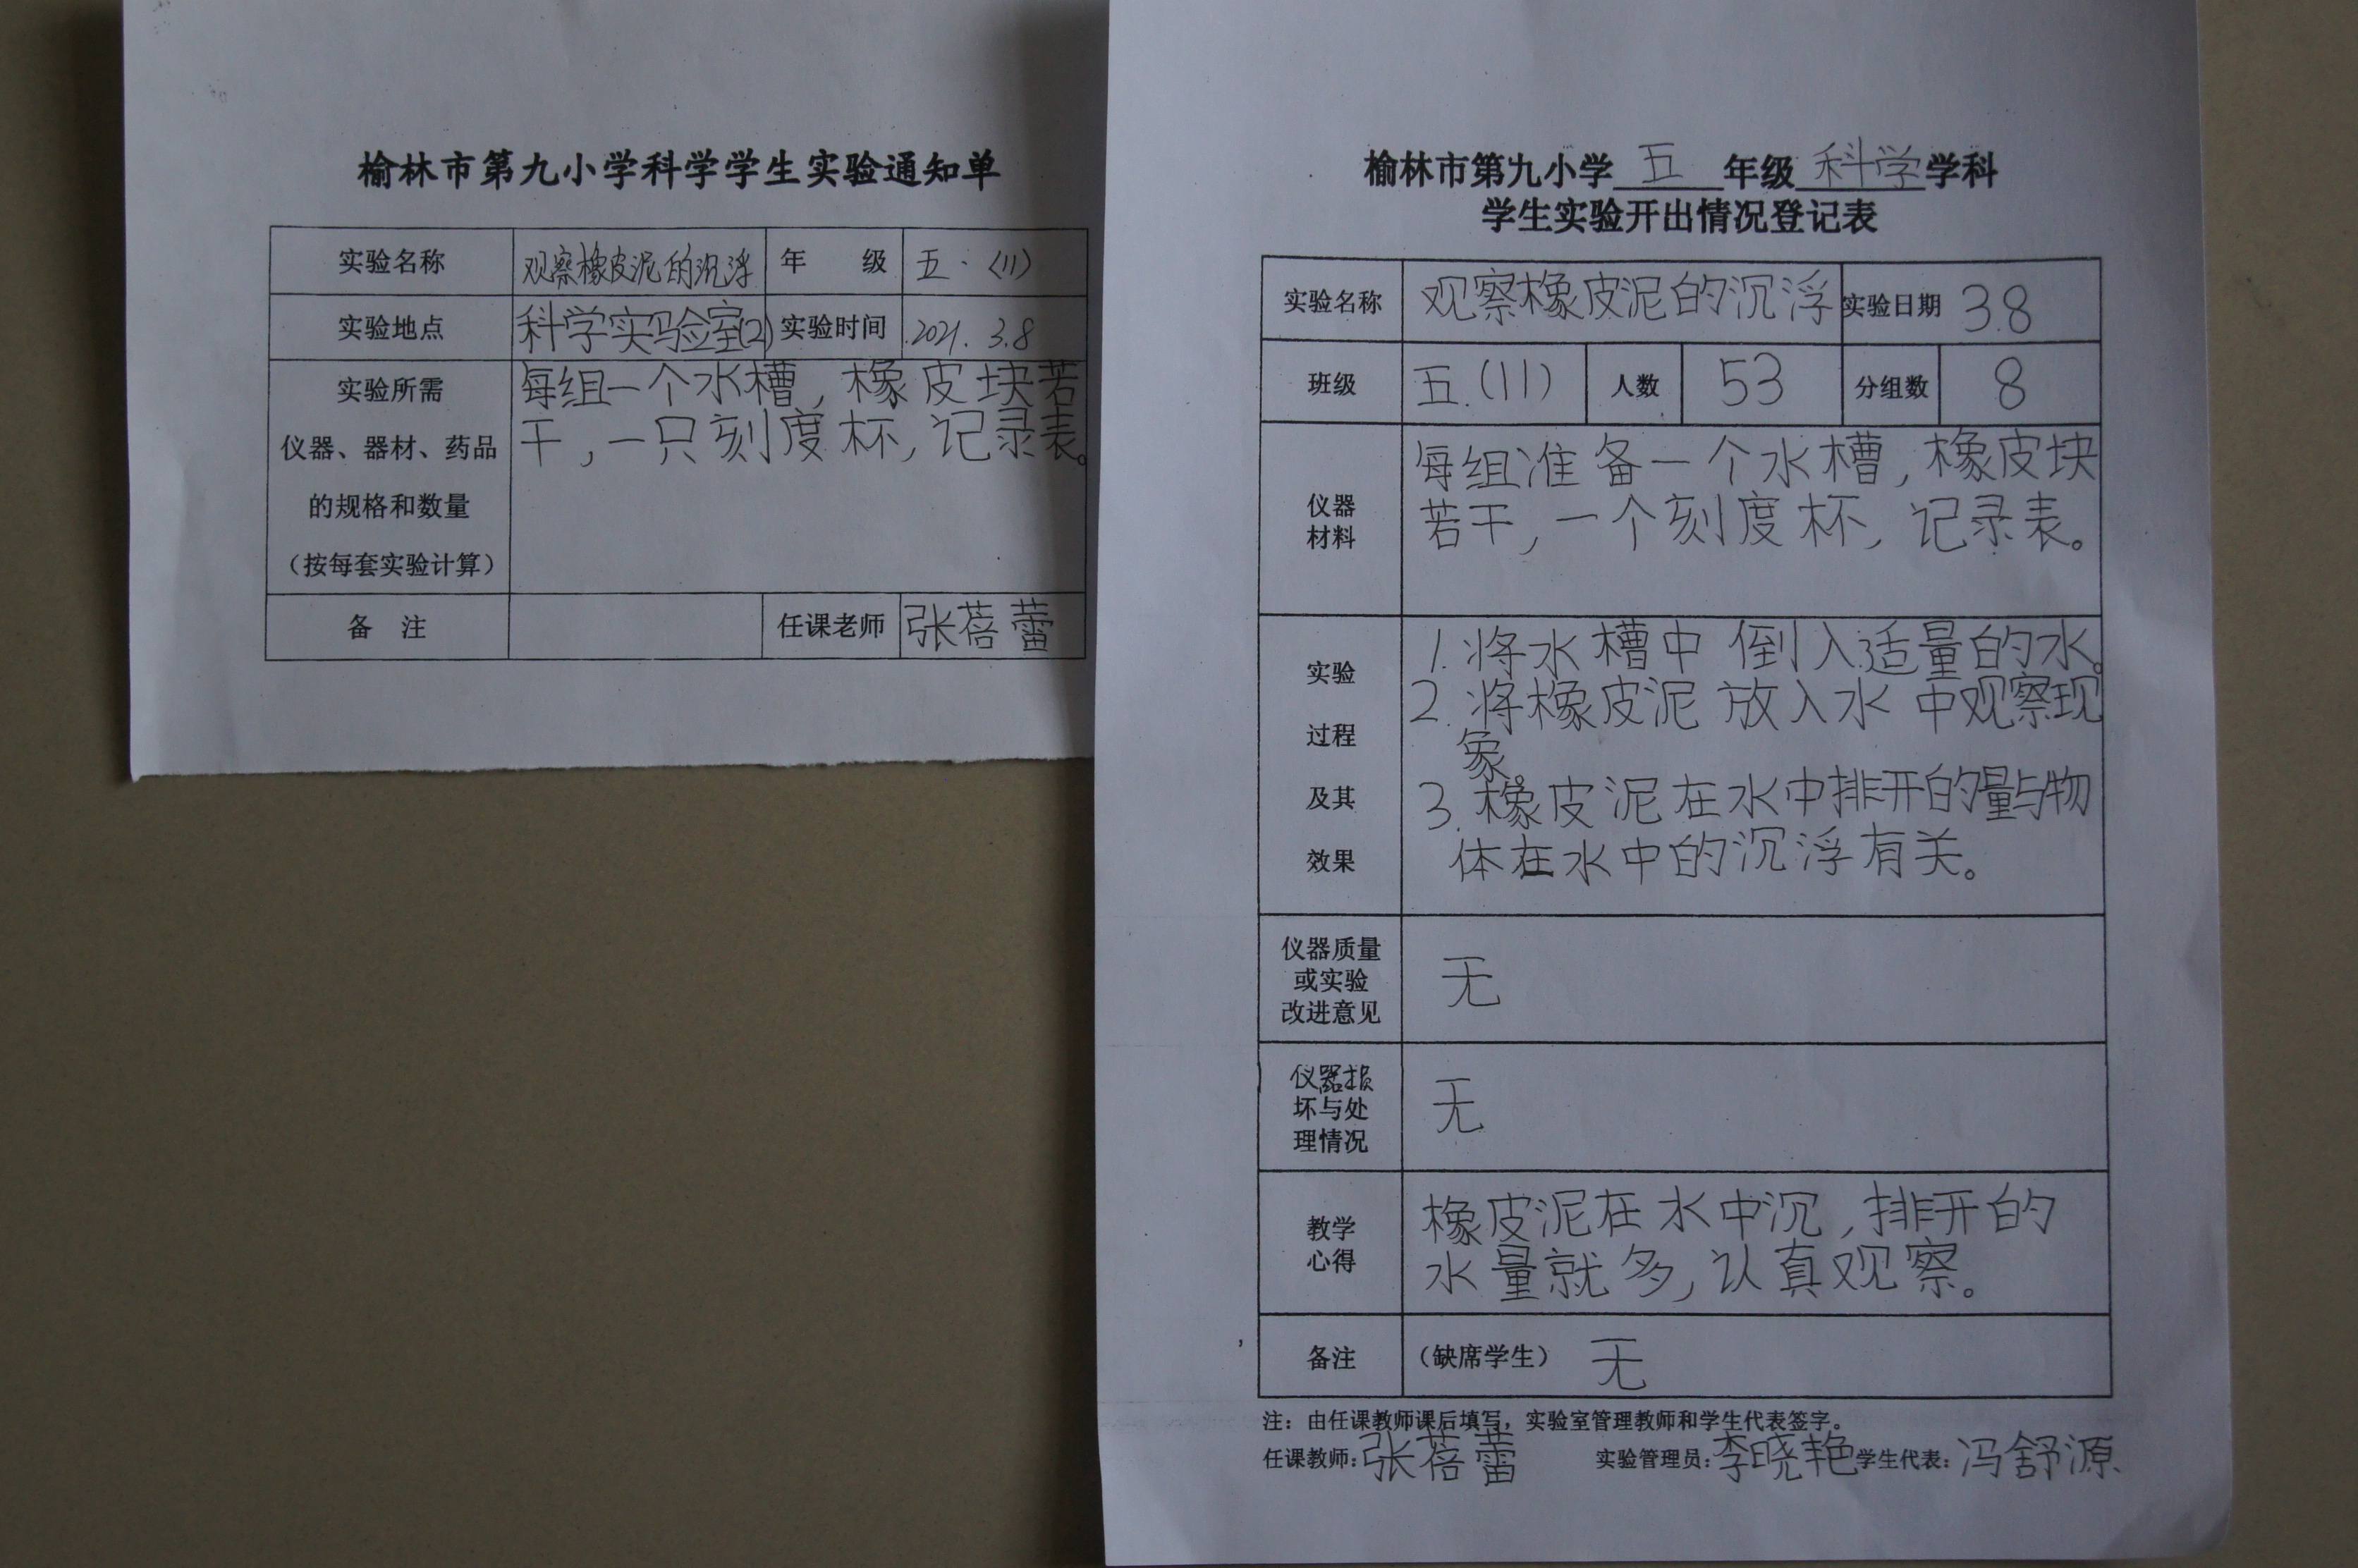 榆林市第九小学科学学生实验通知单
实验名称 观察橡皮泥的沉浮 年 级 五·(11)
实验地点 科学实验室(2) 实验时间 2021.3.8
实验所需
仪器、器材、药品
的规格和数量
(按每套实验计算)
每组一个水槽,橡皮块若
干,一只刻度杯,记录表。
备 注 任课老师 张蓓蕾
榆林市第九小学 五 年级 科学 学科
学生实验开出情况登记表
实验名称 观察橡皮泥的沉浮 实验日期 3.8
班级 五.(11) 人数 53 分组数 8
仪器
材料
每组准备一个水槽,橡皮块
若干,一个刻度杯,记录表。
实验
过程
及其
效果
1.将水槽中倒入适量的水。
2.将橡皮泥放入水中观察现
象。
3.橡皮泥在水中排开的量与物
体在水中的沉浮有关。
仪器质量
或实验
改进意见
无
仪器损
坏与处
理情况
无
教学
心得
橡皮泥在水中沉,排开的
水量就多,认真观察。
备注 (缺席学生) 无
注:由任课教师课后填写,实验室管理教师和学生代表签字。
任课教师:张蓓蕾 实验管理员:李晓艳 学生代表:冯舒源